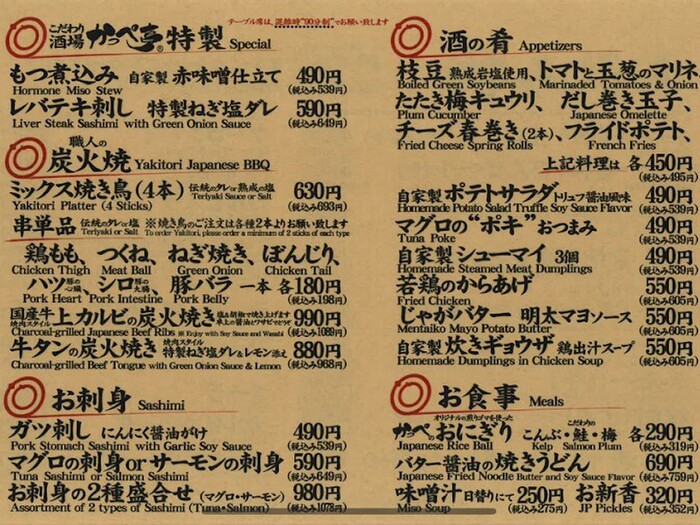 テーブル席は、混雑時"90分制"でお願い致します
こだわり酒場 かっぺ亭® 特製 Special
もつ煮込み 自家製 赤味噌仕立て 490円
Hormone Miso Stew (税込み539円)
レバテキ刺し 特製ねぎ塩ダレ 590円
Liver Steak Sashimi with Green Onion Sauce (税込み649円)
職人の
炭火焼 Yakitori Japanese BBQ
ミックス焼き鳥(4本) 伝統のタレor熟成の塩 630円
Yakitori Platter (4 Sticks) Teriyaki Sauce or Salt (税込み693円)
串単品 伝統のタレor塩 ※焼き鳥のご注文は各種2本よりお願い致します
Teriyaki or Salt To order Yakitori, please order a minimum of 2 sticks of each type
鶏もも、つくね、ねぎ焼き、ぼんじり、
Chicken Thigh Meat Ball Green Onion Chicken Tail
ハツ豚の心臓、シロ豚の大腸、豚バラ 一本 各180円
Pork Heart Pork Intestine Pork Belly (税込み198円)
国産牛 焼肉スタイル 上カルビの炭火焼き 塩&胡椒で焼き上げます 卓上の醤油とワサビでどうぞ 990円
Charcoal-grilled Japanese Beef Ribs ※Enjoy with Soy Sauce and Wasabi (税込み1089円)
牛タンの炭火焼き 焼肉スタイル 特製ねぎ塩ダレ&レモン添え 880円
Charcoal-grilled Beef Tongue with Green Onion Sauce & Lemon (税込み968円)
お刺身 Sashimi
ガツ刺し にんにく醤油がけ 490円
Pork Stomach Sashimi with Garlic Soy Sauce (税込み539円)
マグロの刺身orサーモンの刺身 590円
Tuna Sashimi or Salmon Sashimi (税込み649円)
お刺身の2種盛合せ (マグロ・サーモン) 980円
Assortment of 2 types of Sashimi (Tuna・Salmon) (税込み1078円)
酒の肴 Appetizers
枝豆 熟成岩塩使用、トマトと玉葱のマリネ、
Boiled Green Soybeans Marinaded Tomatoes & Onion
たたき梅キュウリ、 だし巻き玉子、
Plum Cucumber Japanese Omelette
チーズ春巻き(2本)、フライドポテト、
Fried Cheese Spring Rolls French Fries
上記料理は 各450円
(税込み495円)
自家製 ポテトサラダ トリュフ醤油風味 490円
Homemade Potato Salad Truffle Soy Sauce Flavor (税込み539円)
マグロの"ポキ"おつまみ 490円
Tuna Poke (税込み539円)
自家製 シューマイ 3個 490円
Homemade Steamed Meat Dumplings (税込み539円)
若鶏のからあげ 550円
Fried Chicken (税込み605円)
じゃがバター 明太マヨソース 550円
Mentaiko Mayo Potato Butter (税込み605円)
自家製 炊きギョウザ 鶏出汁スープ 550円
Homemade Dumplings in Chicken Soup (税込み605円)
お食事 Meals
オリジナルの煎りゴマを使った こだわりの
かっぺのおにぎり こんぶ・鮭・梅 各290円
Japanese Rice Ball Kelp Salmon Plum (税込み319円)
バター醤油の焼きうどん 690円
Japanese Fried Noodle Butter and Soy Sauce Flavor (税込み759円)
味噌汁 日替りにて 250円 お新香 320円
Miso Soup (税込み275円) JP Pickles (税込み352円)